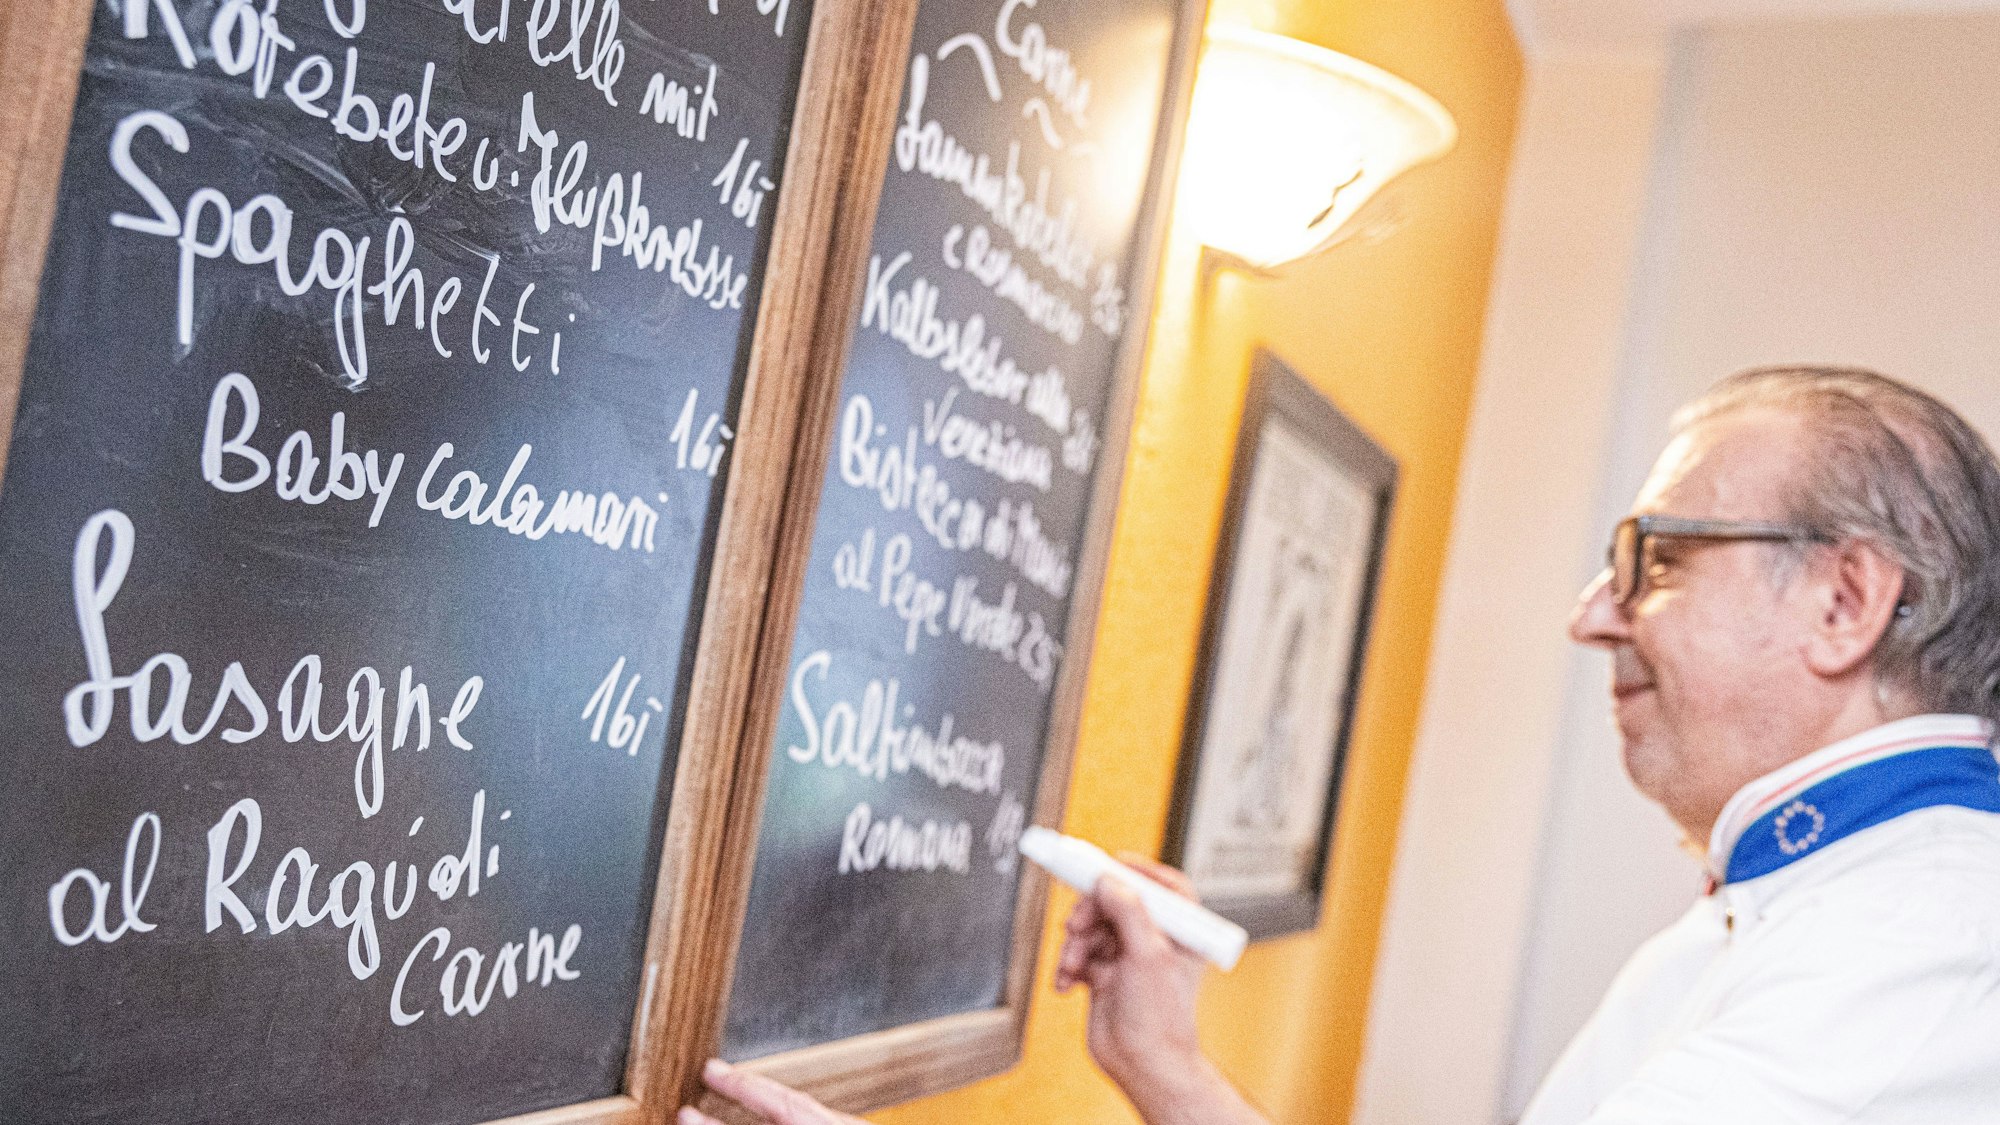 mit
Rotebete u. Flußkrebsse 16,-
Spaghetti
Baby Calamari 16,-
Lasagne 16,-
al Ragú di
Carne
Carne
Lammkotelett 25,-
c Rosmarino
Kalbsleber alla
Veneziana
Bistecca di Manzo
al Pepe Verde 25,-
Saltimbocca
Romana